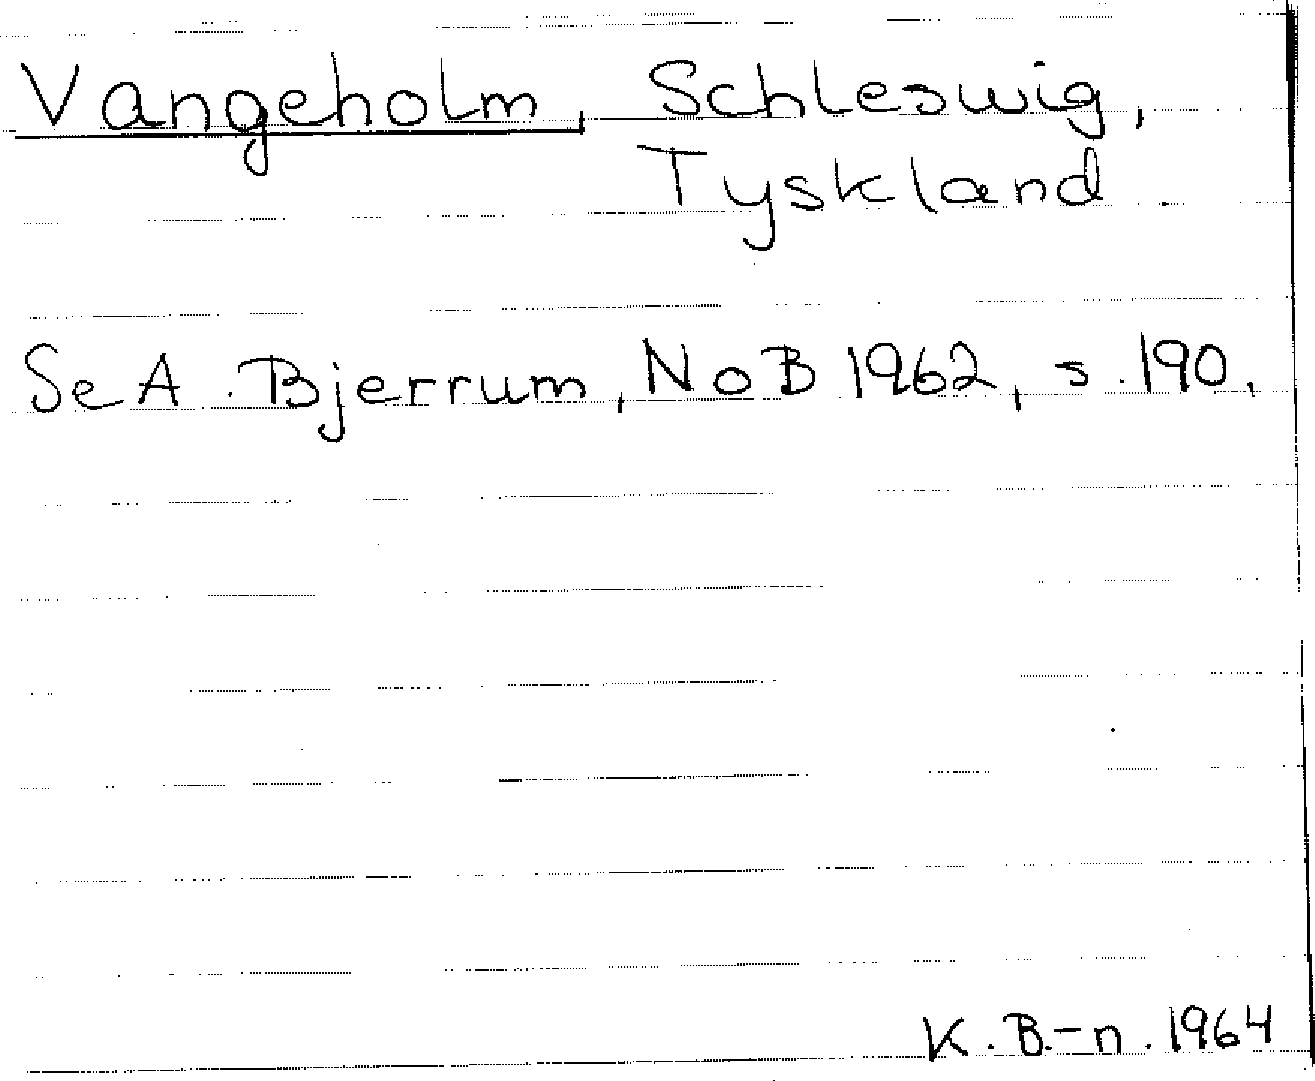 Vangeholm, Schleswig,
Tyskland
Se A. Bjerrum, NoB 1962, s. 190.
K. B.-n. 1964